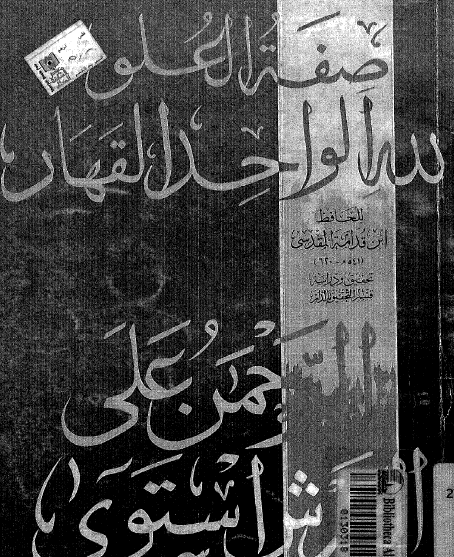 صِفَةُ العُلو
للهِ الواحِد القَهَّار
للحَافظ
ابن قدامَة المقدسي
(٥٤١ - ٦٢٠)
تحقيق ودراسة
الرَّحمَنُ عَلَى
العَرْشِ اسْتَوَى
Bibliotheca
2